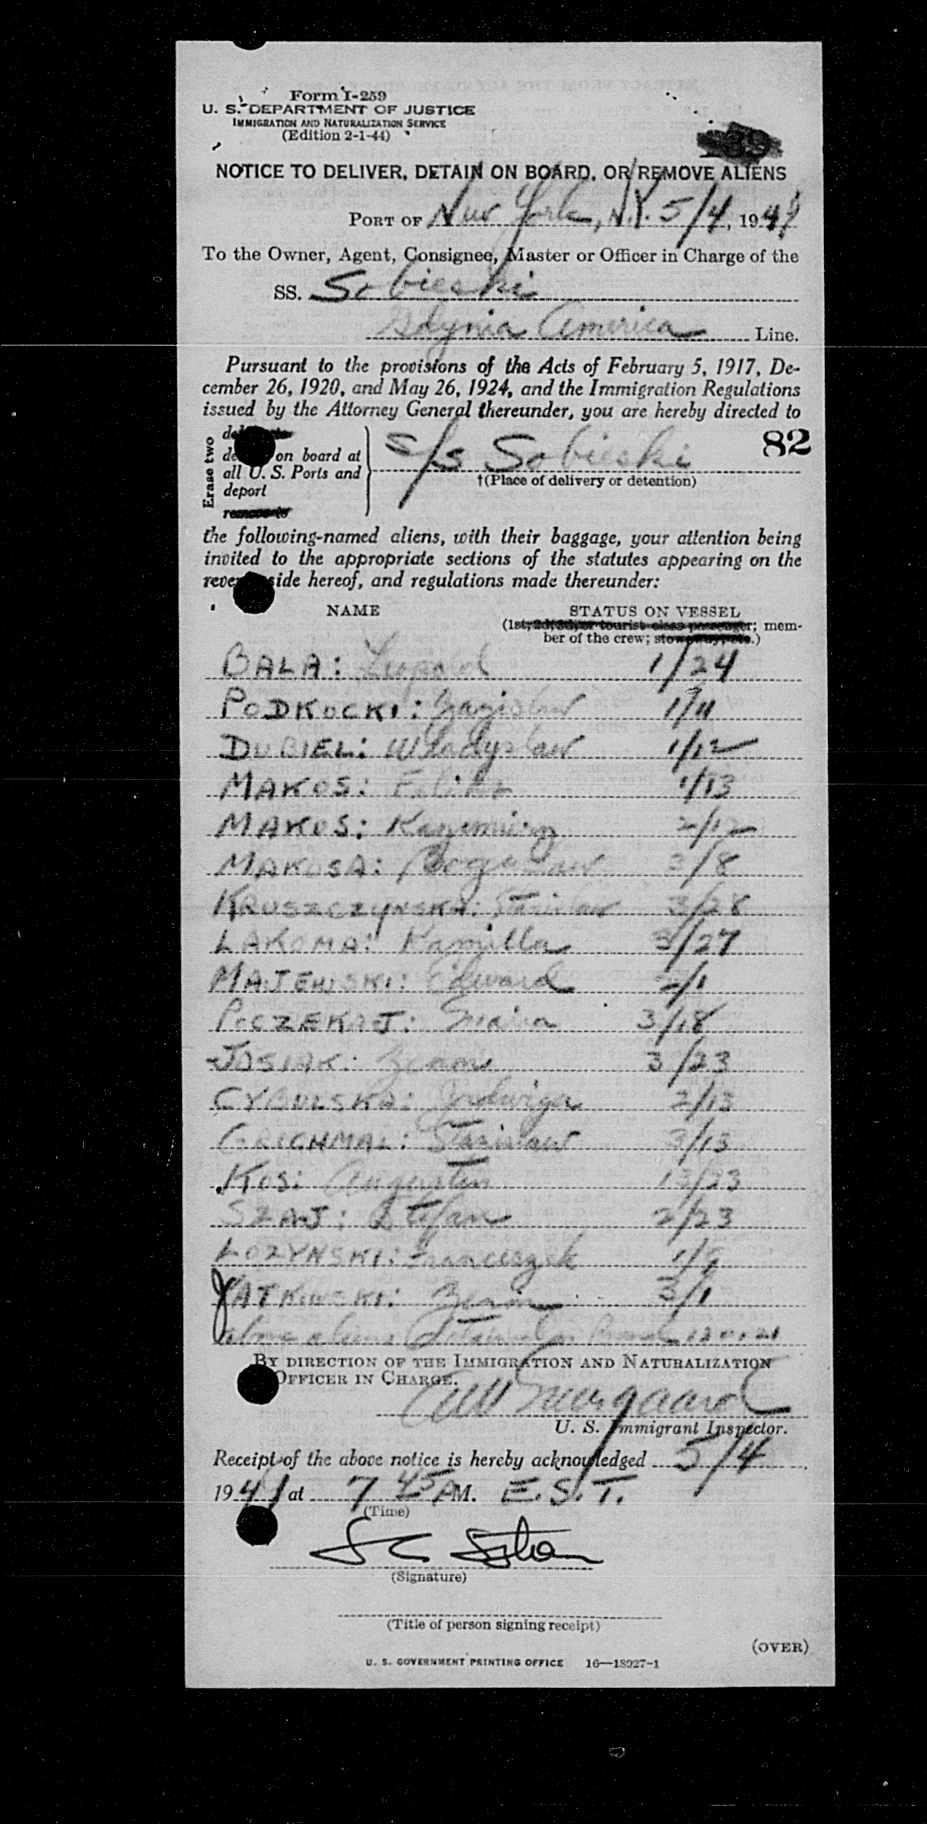 Form I-259
U. S. DEPARTMENT OF JUSTICE
IMMIGRATION AND NATURALIZATION SERVICE
(Edition 2-1-44)
NOTICE TO DELIVER, DETAIN ON BOARD, OR REMOVE ALIENS
PORT OF New York, N.Y. 5/4, 194
To the Owner, Agent, Consignee, Master or Officer in Charge of the
SS. Sobieski
Gdynia America Line.
Pursuant to the provisions of the Acts of February 5, 1917, De-
cember 26, 1920, and May 26, 1924, and the Immigration Regulations
issued by the Attorney General thereunder, you are hereby directed to
82
Erase two
on board at
all U. S. Ports and
deport
remove to
S/S Sobieski
†(Place of delivery or detention)
the following-named aliens, with their baggage, your attention being
invited to the appropriate sections of the statutes appearing on the
reverse side hereof, and regulations made thereunder:
NAME STATUS ON VESSEL
(1st, 2d, 3d, or tourist class passenger; mem-
ber of the crew; stowaway, etc.)
BALA: Leopold 1/24
PODKOCKI: 1/11
DUBIEL: Wladyslaw 1/12
MAKOS: 1/13
MAKOS: Kazimierz 2/12
MAKOSA: 3/8
KRUSZCZYNSKA: 3/28
LAKOMA: Kamilla 3/27
MAJEWSKI: Edward 2/1
POCZEKAJ: Maria 3/18
JOSIAK: Zenon 3/23
CYBULSKA: Jadwiga 2/13
Stanislaw 3/13
KOS: Augustin 13/23
SZAJ: Stefan 2/23
LOZYNSKI: Franciszek
JATKOWSKI: Zenon 3/1
Above aliens
BY DIRECTION OF THE IMMIGRATION AND NATURALIZATION
OFFICER IN CHARGE.
U. S. Immigrant Inspector.
Receipt of the above notice is hereby acknowledged 5/4
194 at 7 45 AM. E.S.T.
(Time)
(Signature)
(Title of person signing receipt)
(OVER)
U. S. GOVERNMENT PRINTING OFFICE 16—18927-1